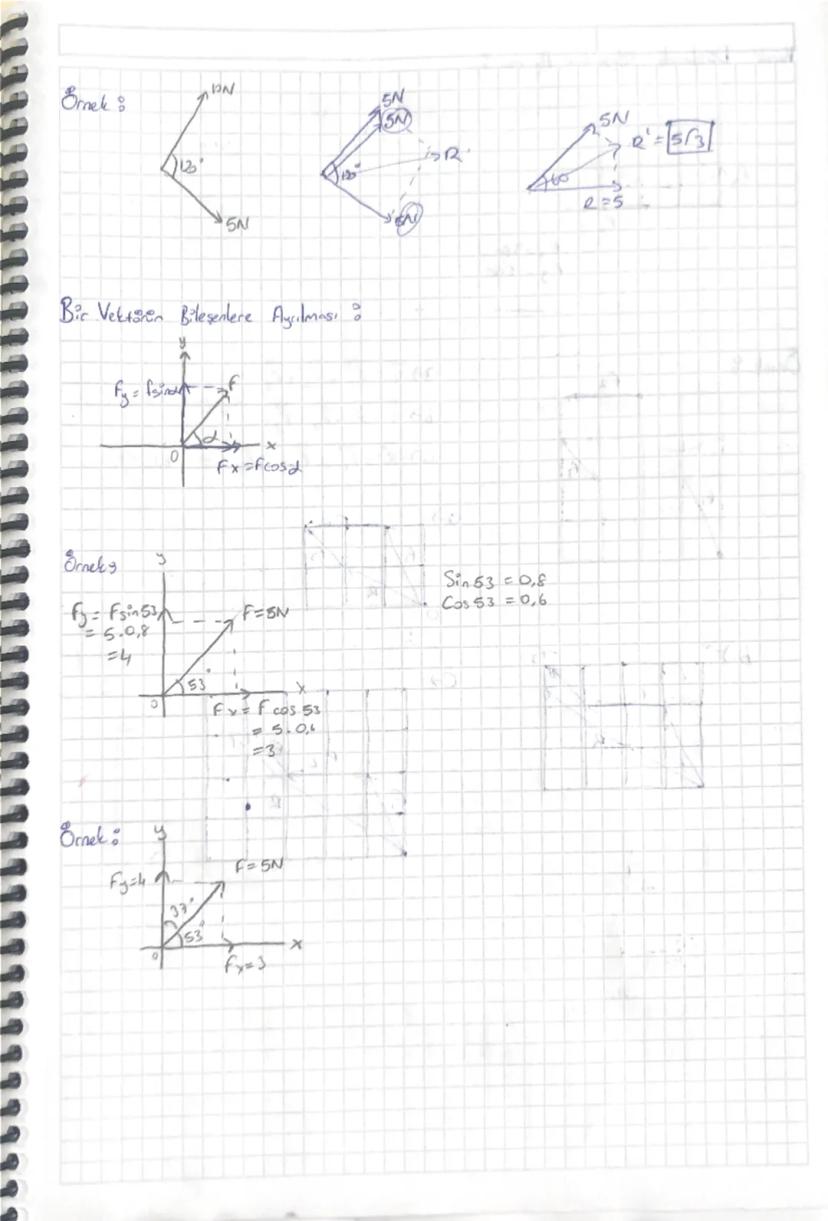 Örnek:
10N
120°
5N
5N
5N
120°
R'
5N
5N
60
R' = 5√3
R = 5
Bir Vektörün Bileşenlere Ayrılması:
y
Fy = Fsinα
F
α
0
x
Fx = Fcosα
Örnek:
y
Fy = Fsin53
= 5.0,8
= 4
F=5N
53°
0
x
Fx = F cos 53
= 5.0,6
= 3
Sin 53 = 0,8
Cos 53 = 0,6
Örnek:
y
Fy=4
F=5N
37°
53°
0
x
Fx=3